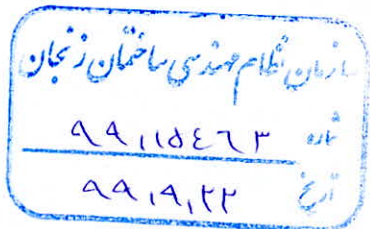 سازمان نظام مهندسی ساختمان زنجان
شماره ۹۹,۱۱۵۴۶۳
تاریخ ۹۹,۹,۲۲